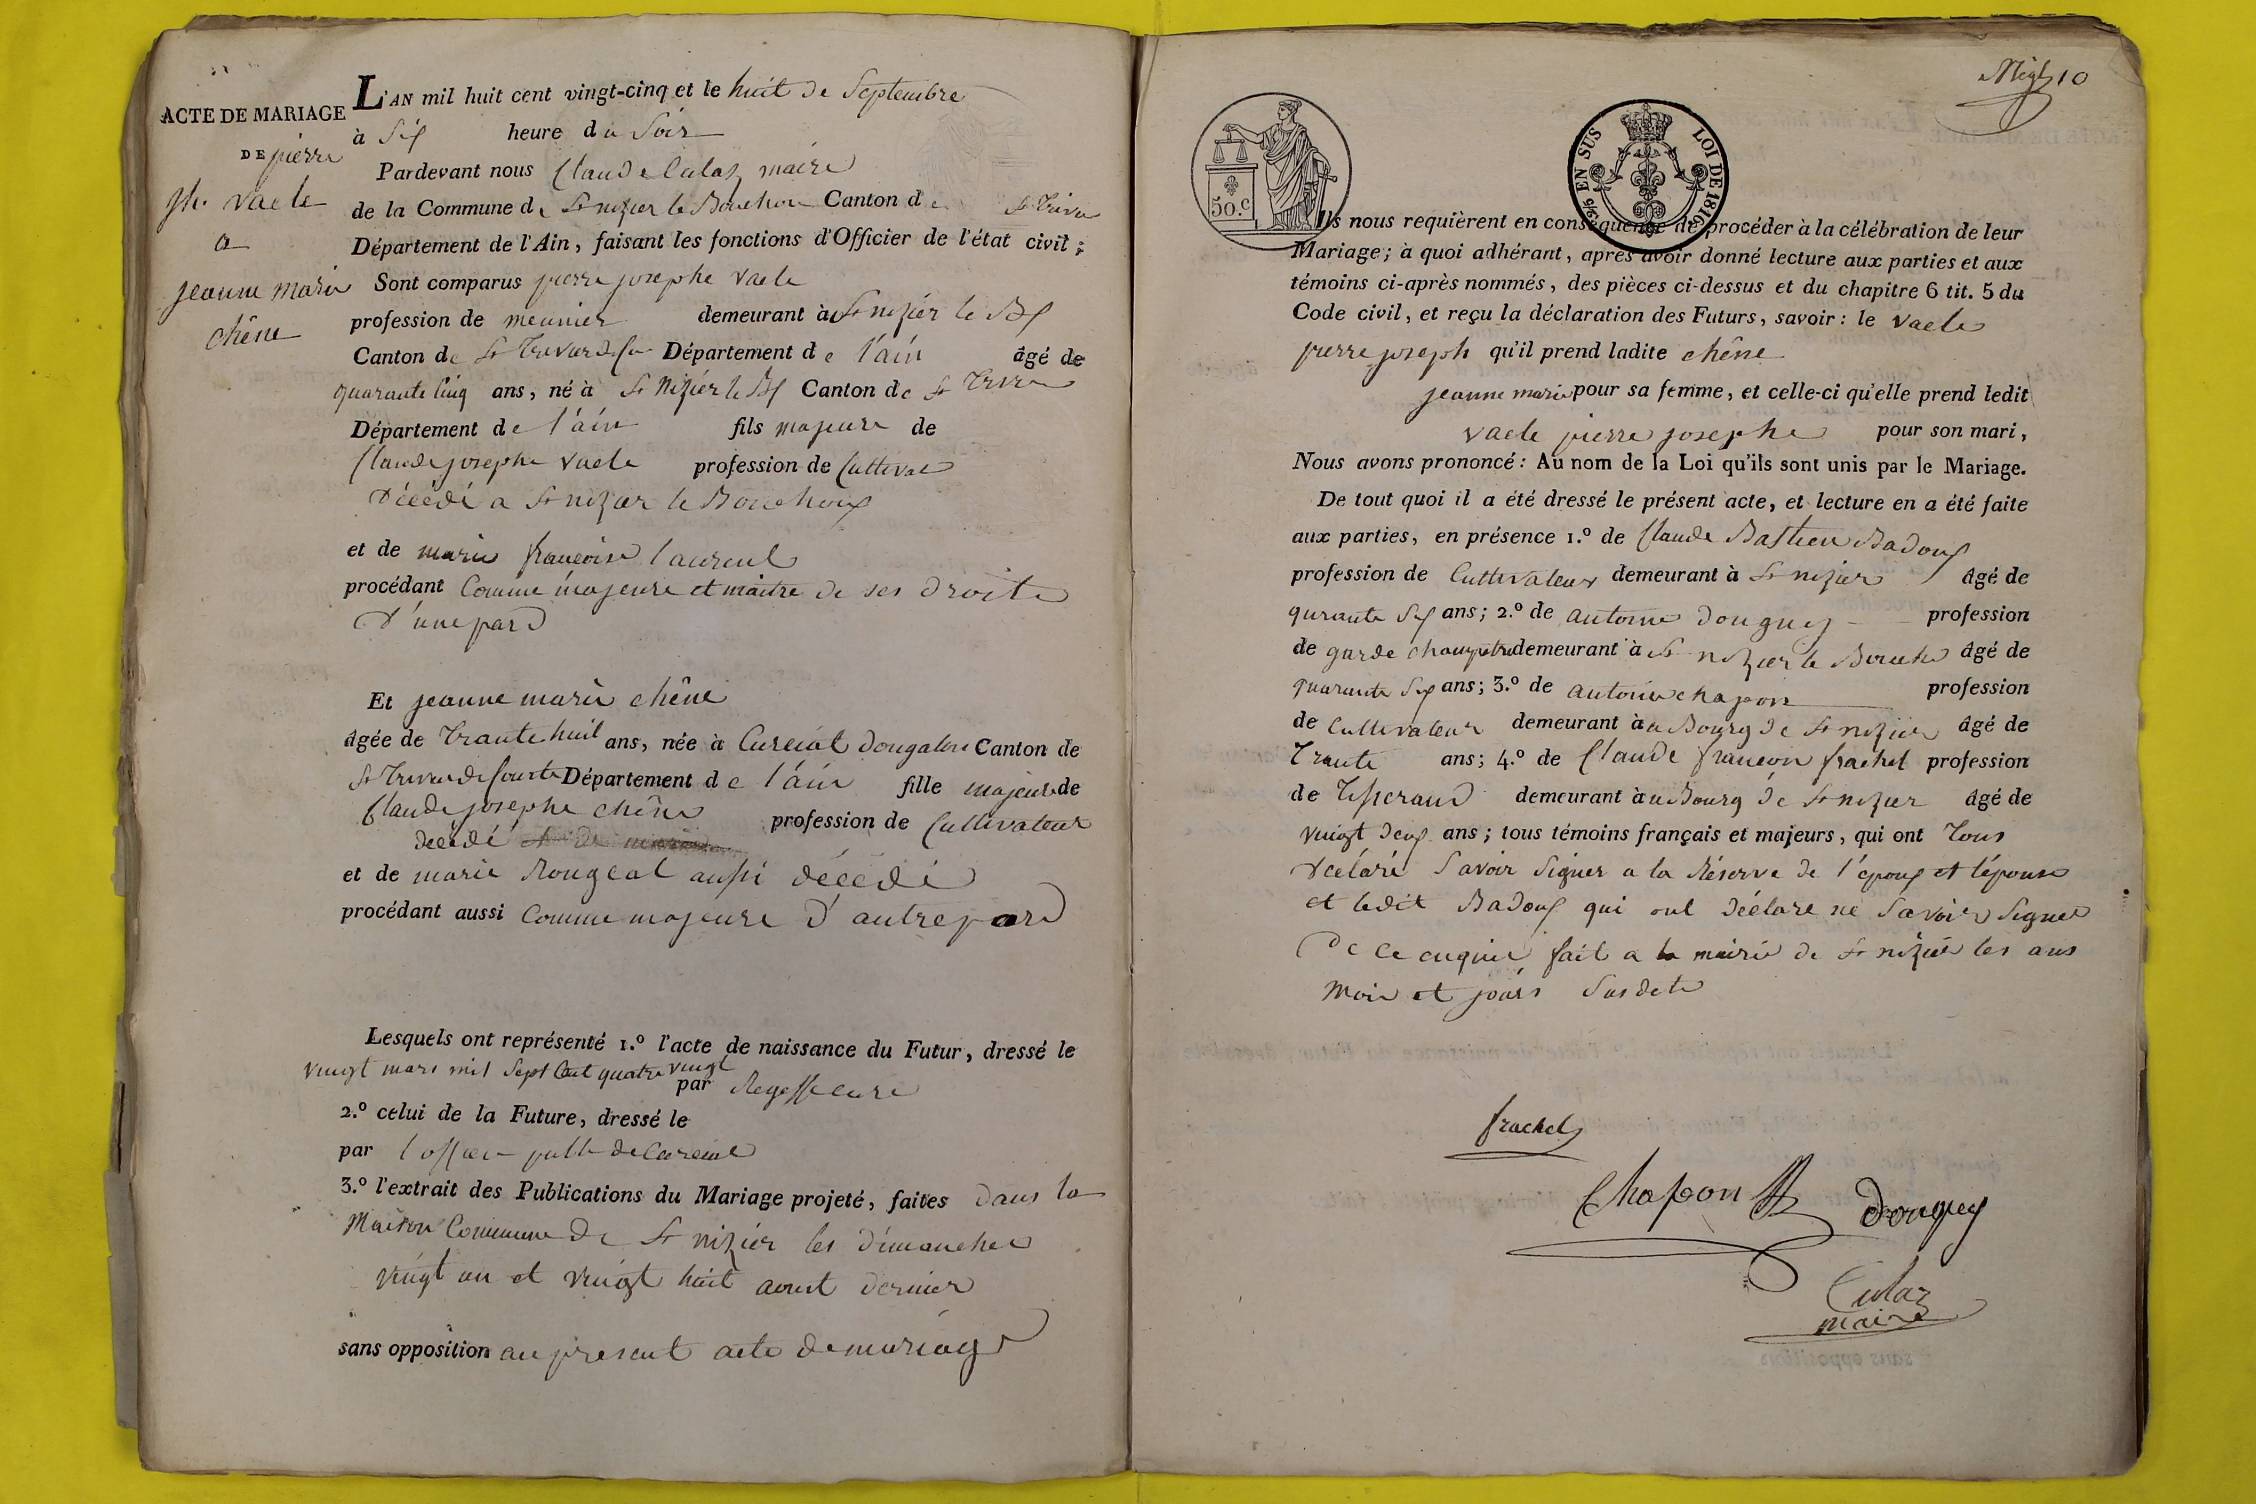 ACTE DE MARIAGE
DE pierre
jh. vaele
a
jeanne marie
chêne
L'AN mil huit cent vingt-cinq et le huit de Septembre
à Six heure du Soir
Pardevant nous Claude Culaz maire
de la Commune de St nizier le Bouchou Canton de St Trivie
Département de l'Ain, faisant les fonctions d'Officier de l'état civil;
Sont comparus pierre josephe vaele
profession de meunier demeurant à St nizier le Bx
Canton de St Trivier de Département de l'ain âgé de
quarante cinq ans, né à St Nizier le Bx Canton de St Trivie
Département de l'ain fils majeure de
Claude josephe vaele profession de Cultivat
Décédé a St nizier le Bouchoux
et de marie françoise laurent
procédant Comme majeure et maitre de ses droits
d'une pard
Et jeanne marie chêne
âgée de Trante huit ans, née à Curciat dongalon Canton de
St Trivier de Courte Département de l'ain fille majeure de
Claude josephe chêne profession de Cultivateur
décédé
et de marie Rongeat aussi décédé
procédant aussi Comme majeure d'autre pard
Lesquels ont représenté 1.º l'acte de naissance du Futur, dressé le
vingt mars mil Sept Cent quatre vingt par
2.º celui de la Future, dressé le
par l'officier public de Curciat
3.º l'extrait des Publications du Mariage projeté, faites dans la
Maison Commune de St nizier les dimanches
vingt un et vingt huit aout dernier
sans opposition au present acte de mariage
10
EN SUS LOI DE 1816
50.c
Ils nous requièrent en conséquence de procéder à la célébration de leur
Mariage; à quoi adhérant, après avoir donné lecture aux parties et aux
témoins ci-après nommés, des pièces ci-dessus et du chapitre 6 tit. 5 du
Code civil, et reçu la déclaration des Futurs, savoir: le vaele
pierre joseph qu'il prend ladite chêne
jeanne marie pour sa femme, et celle-ci qu'elle prend ledit
vaele pierre josephe pour son mari,
Nous avons prononcé: Au nom de la Loi qu'ils sont unis par le Mariage.
De tout quoi il a été dressé le présent acte, et lecture en a été faite
aux parties, en présence 1.º de Claude Bastien Badoux
profession de Cultivateur demeurant à St nizier âgé de
qurante Six ans; 2.º de antoine Donguy profession
de garde champetre demeurant à St nizier le Bouch âgé de
quarante Six ans; 3.º de antoine chapon profession
de Cultivateur demeurant à u Bourg de St nizier âgé de
Trante ans; 4.º de Claude françois frachet profession
de Tisserand demeurant à u Bourg de St nizier âgé de
vingt deux ans; tous témoins français et majeurs, qui ont Tous
Déclaré Savoir Signer a la Réserve de l'époux et l'épouse
et ledit Badoux qui ont déclare ne Savoir Signer
De ce enquis fait a la mairie de St nizier les ans
Mois et jours Susdits
frachet
Chapon
Donguy
Culaz
maire